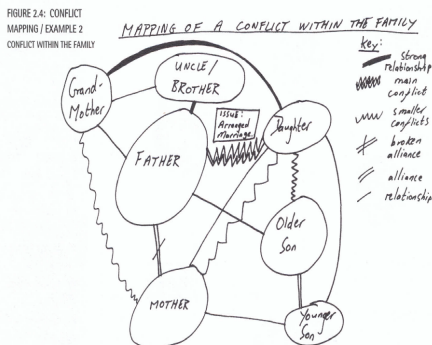 FIGURE 2.4: CONFLICT
MAPPING / EXAMPLE 2
CONFLICT WITHIN THE FAMILY
MAPPING OF A CONFLICT WITHIN THE FAMILY
Key:
strong
relationship
main
conflict
smaller
conflicts
broken
alliance
alliance
relationship
Grand-
Mother
UNCLE/
BROTHER
ISSUE:
Arranged
Marriage
Daughter
FATHER
Older
Son
MOTHER
Younger
Son